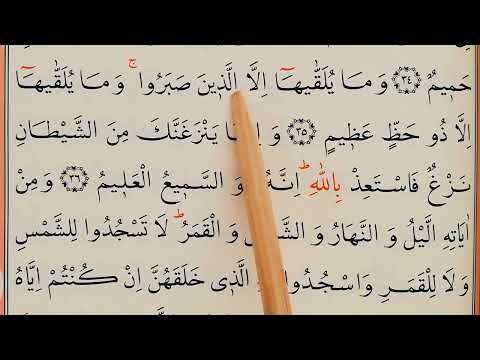 حَمٖيمٌ ﴿٣٤﴾ وَمَا يُلَقّٰيهَٓا اِلَّا الَّذٖينَ صَبَرُواۚ وَمَا يُلَقّٰيهَٓا
اِلَّا ذُو حَظٍّ عَظٖيمٍ ﴿٣٥﴾ يَنْزَغَنَّكَ مِنَ الشَّيْطَانِ
نَزْغٌ فَاسْتَعِذْ بِاللّٰهِؕ اِنَّهُ السَّمٖيعُ الْعَلٖيمُ ﴿٣٦﴾ وَمِنْ
اٰيَاتِهِ الَّيْلُ وَالنَّهَارُ وَالْقَمَرُؕ لَا تَسْجُدُوا لِلشَّمْسِ
وَلَا لِلْقَمَرِ وَاسْجُدُوا الَّذٖي خَلَقَهُنَّ اِنْ كُنْتُمْ اِيَّاهُ